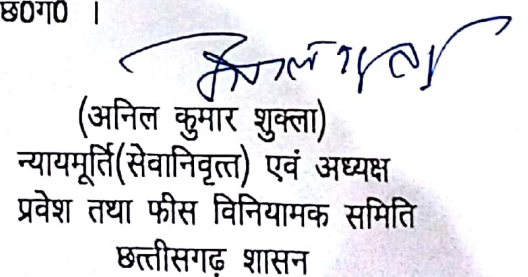 छ0ग0 ।
(अनिल कुमार शुक्ला)
न्यायमूर्ति(सेवानिवृत्त) एवं अध्यक्ष
प्रवेश तथा फीस विनियामक समिति
छत्तीसगढ़ शासन